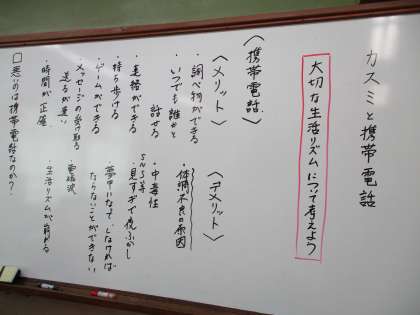 カスミと携帯電話
大切な生活リズムについて考えよう
〈携帯電話〉
〈メリット〉
・調べ物ができる
・いつでも誰かと
話せる
・連絡ができる
・持ち歩ける
・ゲームができる
・メッセージの受け取る
送るが速い
・時間が正確
〈デメリット〉
・体調不良の原因
・中毒性
SNS等
・見すぎて夜ふかし
・夢中になってしなければ
ならないことができない
・電磁波
・生活リズムが崩れる
□悪いのは携帯電話なのか?